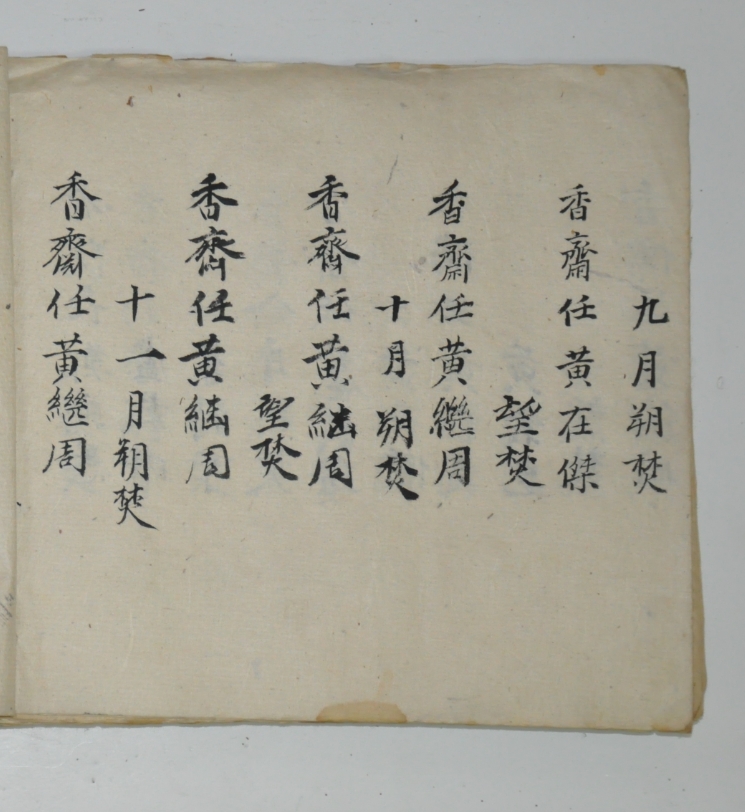 九月朔焚
香齋任黃在傑
望焚
香齋任黃繼周
十月朔焚
香齋任黃継周
望焚
香齋任黃継周
十一月朔焚
香齋任黃繼周